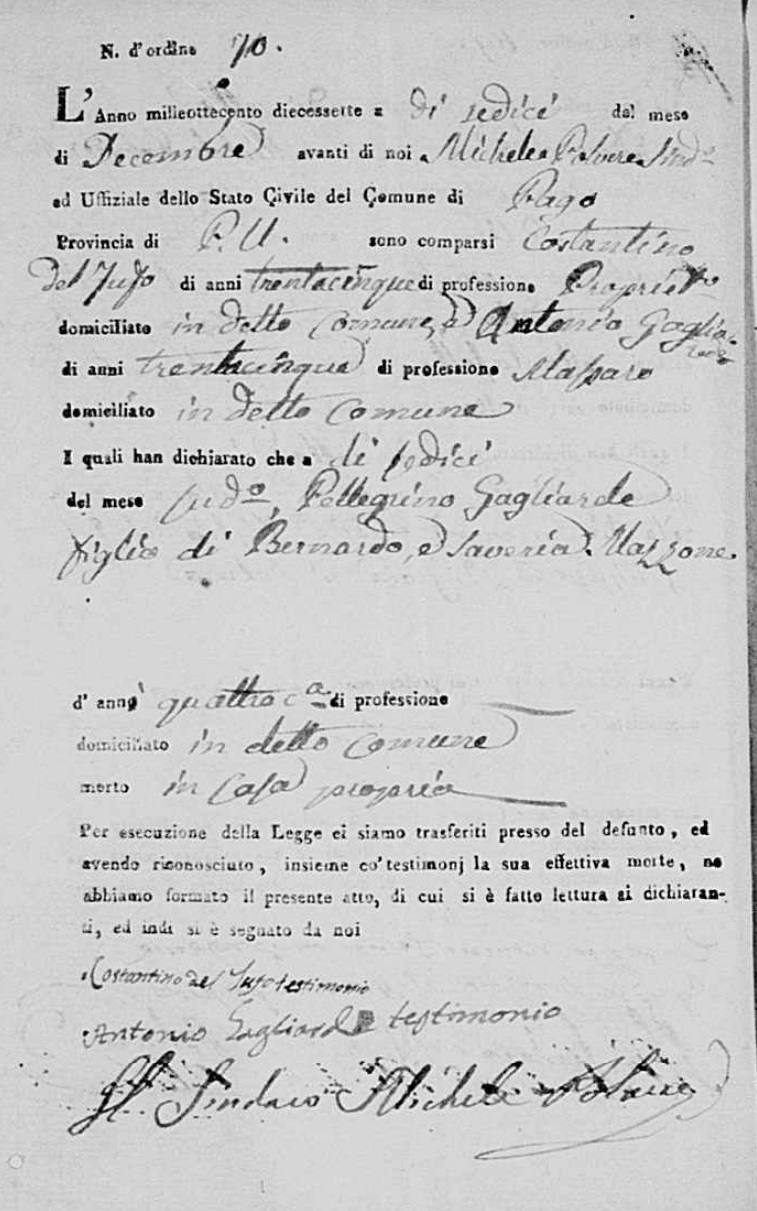 N. d'ordine 70.
L'Anno milleottecento diecessette a di sedici del mese
di Decembre avanti di noi Michele Polvere Sind.o
ed Uffiziale dello Stato Civile del Comune di Pago
Provincia di P. U. sono comparsi Costantino
del Jufo di anni trentacinque di professione Propriet.o
domiciliato in detto Comune, e Antonio Gagliarde
di anni trentacinque di professione Massaro
domiciliato in detto Comune
I quali han dichiarato che a di sedici
del mese sud.o, Pellegrino Gagliarde
figlio di Bernardo, e Saveria Mazzone
d' anni quattro c.a di professione
domiciliato in detto Comune
morto in Casa propria
Per esecuzione della Legge ci siamo trasferiti presso del defunto, ed
avendo riconosciuto, insieme co' testimonj la sua effettiva morte, ne
abbiamo formato il presente atto, di cui si è fatto lettura ai dichiaran-
ti, ed indi si è segnato da noi
Costantino del Jufo testimonio
Antonio Gagliarde testimonio
Il Sindaco Michele Polvere